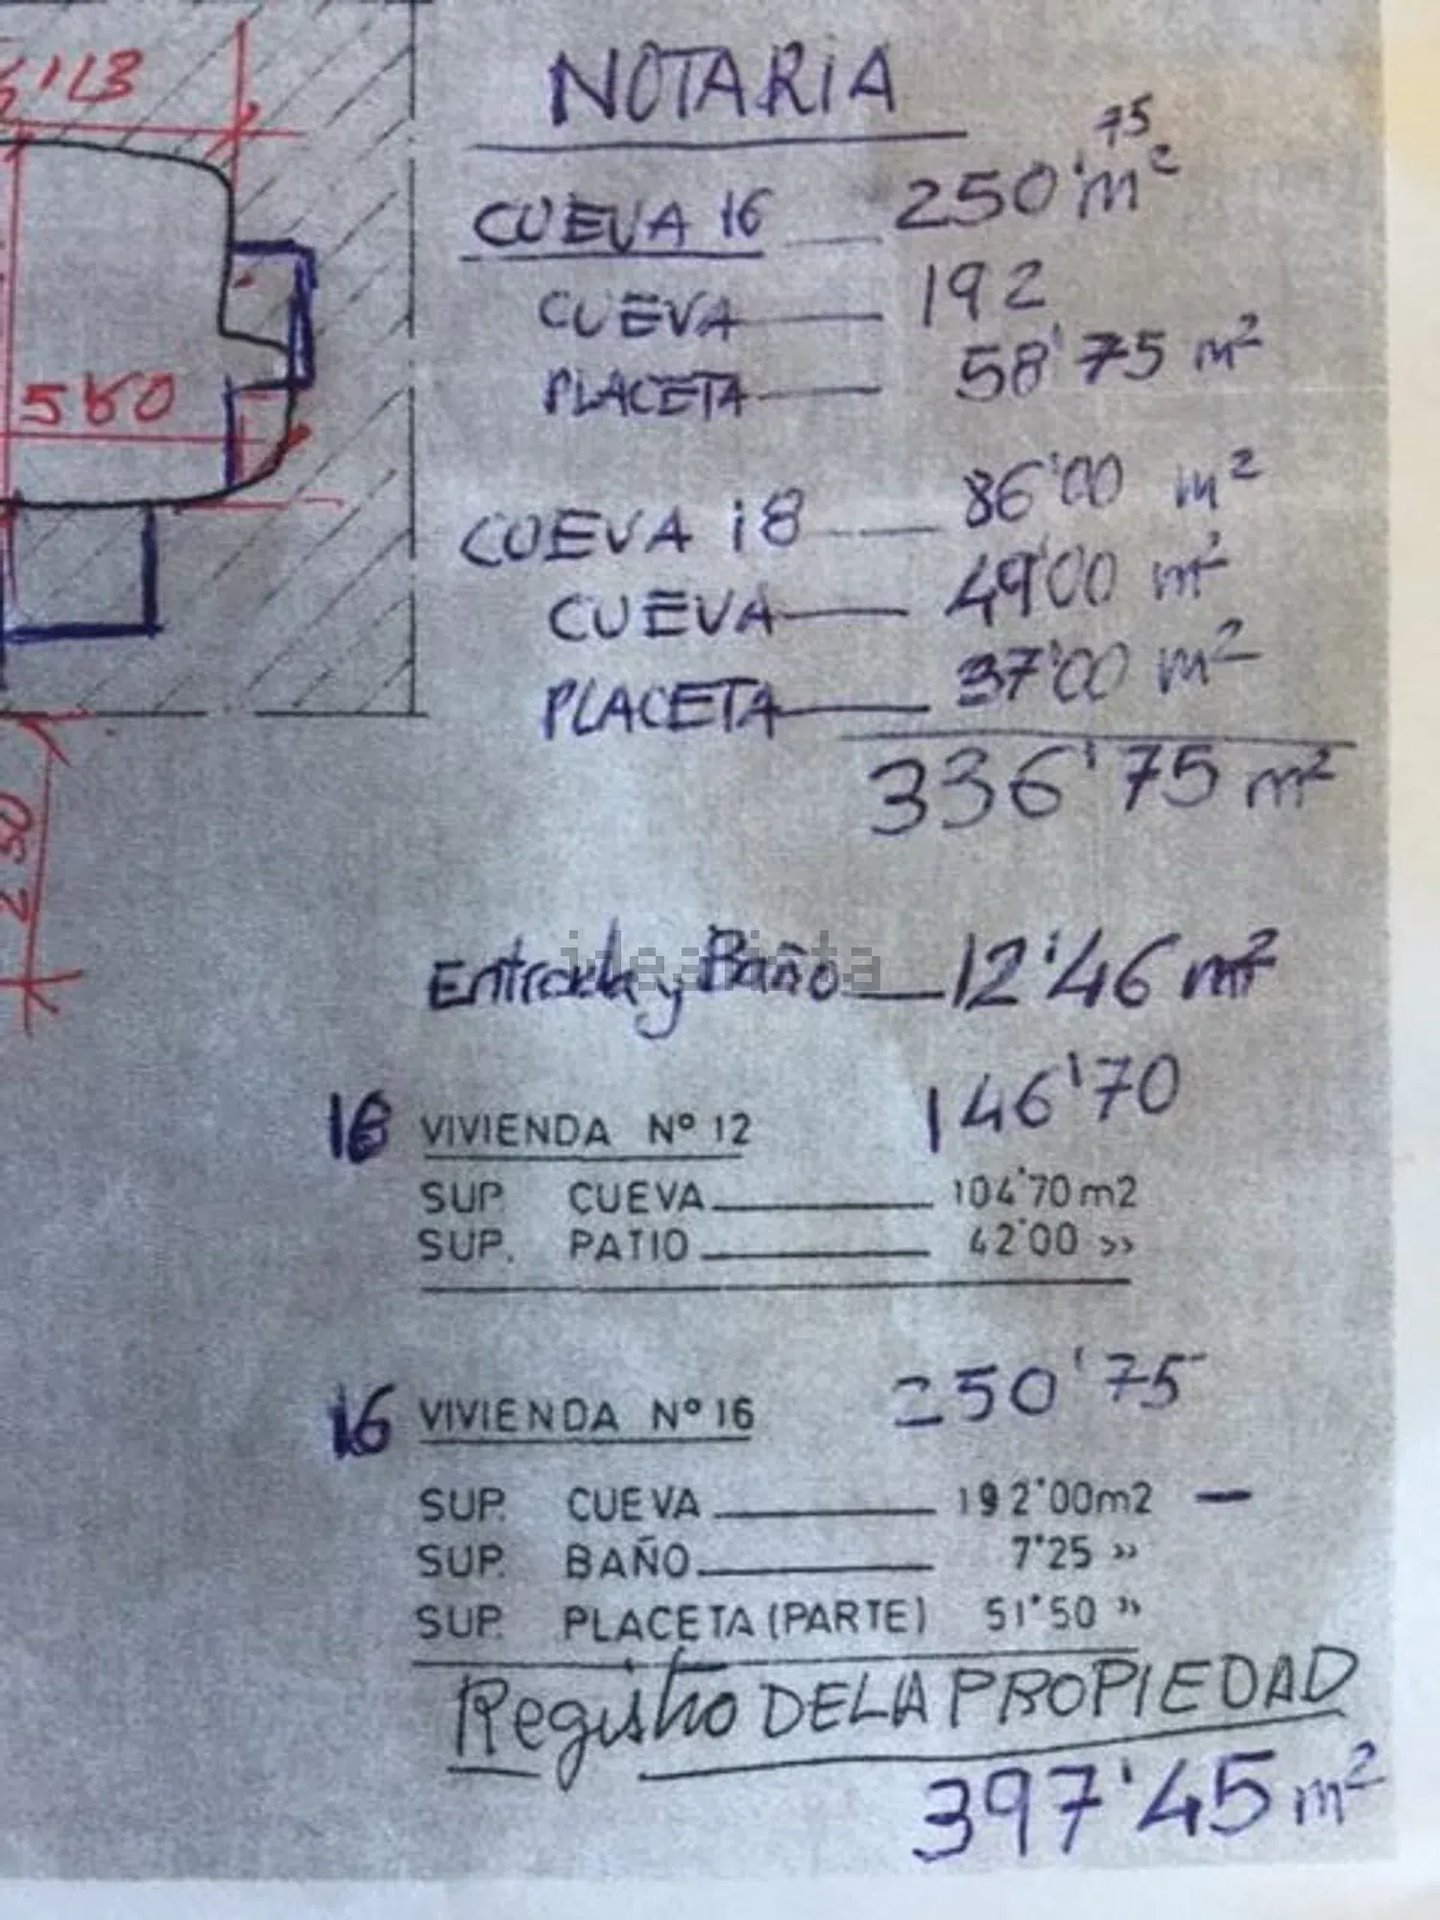 6'113
NOTARIA
CUEVA 16 250'75 m²
CUEVA 192
PLACETA 58'75 m²
560
CUEVA 18 86'00 m²
CUEVA 49'00 m²
PLACETA 37'00 m²
336'75 m²
250
idealista
Entrada y Baño 12'46 m²
18 VIVIENDA Nº 12 146'70
SUP. CUEVA 104'70 m2
SUP. PATIO 42'00 »
16 VIVIENDA Nº 16 250'75
SUP. CUEVA 192'00 m2 —
SUP. BAÑO 7'25 »
SUP. PLACETA (PARTE) 51'50 »
Registro DE LA PROPIEDAD
397'45 m²